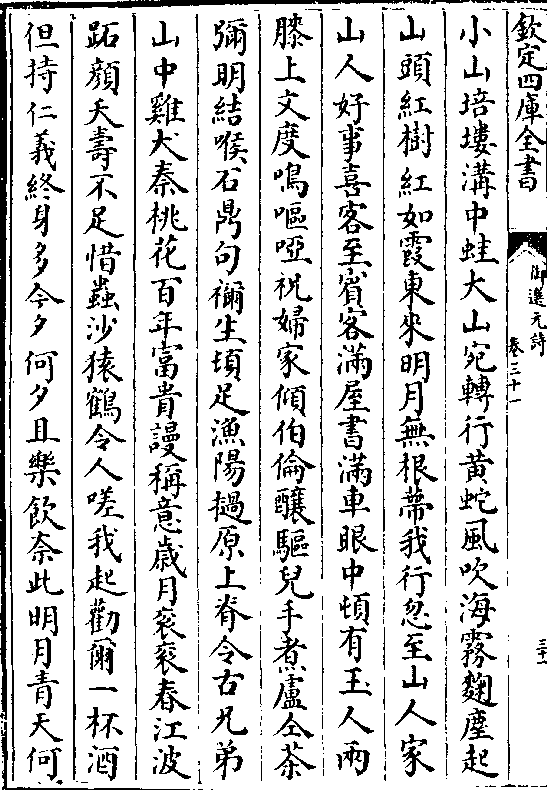 欽定四庫全書
御選元詩
卷三十一
小山培塿溝中蛙大山宛轉行黄蛇風吹海霧麴塵起
山頭紅樹紅如霞東來明月無根蔕我行忽至山人家
山人好事喜客至賓客滿屋書滿車眼中頃有玉人兩
膝上文度鳴嘔啞祝婦家傾伯倫釀驅兒手煮盧仝茶
彌明結喉石鼎句禰生頓足漁陽撾原上脊令右兄弟
山中雞犬秦桃花百年富貴謾稱意歳月衮衮春江波
跖顔夭壽不足惜蟲沙猿鶴令人嗟我起勸爾一杯酒
但持仁義終身多今夕何夕且樂飲奈此明月青天何